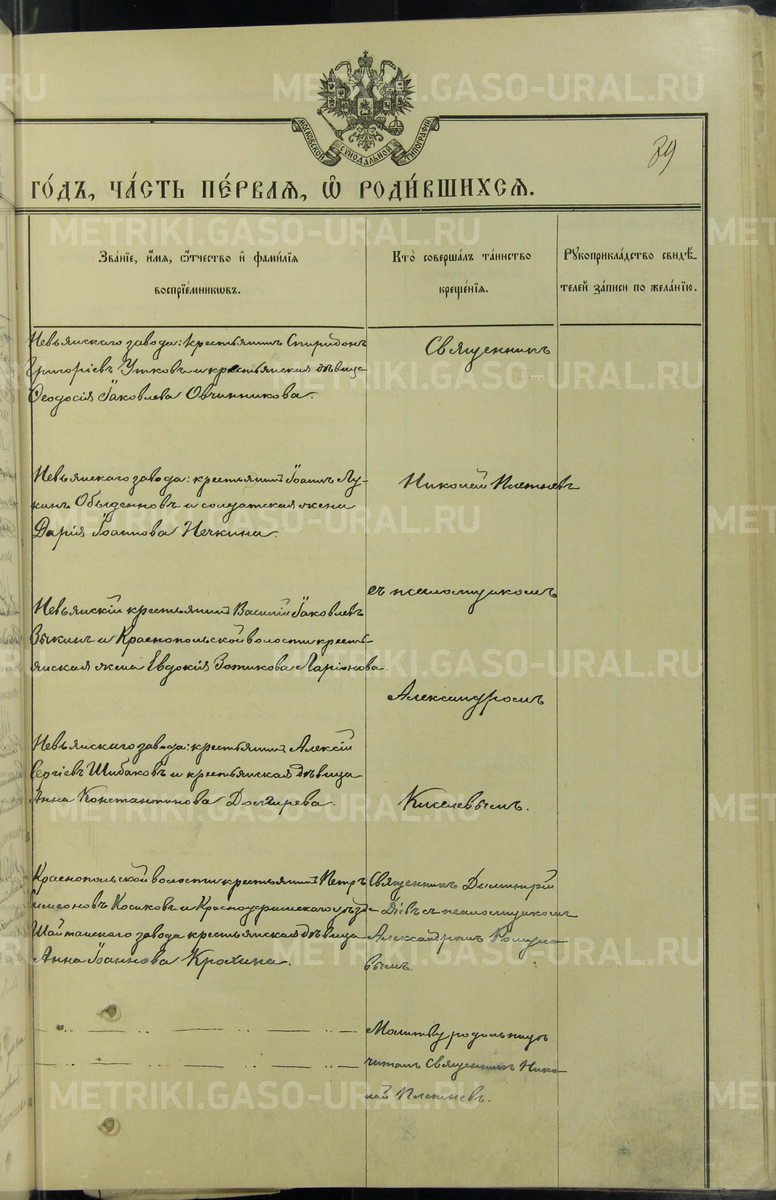 METRIKI.GASO-URAL.RU
МОСКОВСКОЙ СѴНОДАЛЬНОЙ ТИПОГРАФІИ
39
ГО́ДЪ, ЧА́СТЬ ПЕ́РВАЯ, Ѽ РОДИ́ВШИХСЯ.
Зва́нїе, и҆́мя, ѻ҆́тчество и҆ фами́лїя
воспрїе́мникѡвъ.
Кто̀ соверша́лъ та́инство
креще́нїя.
Рꙋкоприкла́дство свидѣ́-
телей за́писи по жела́нїю.
Невьянскаго завода: крестьянинъ Спиридонъ
Григоріевъ Утковъ и крестьянская дѣвица
Ѳеодосія Іаковлева Овчинникова.
Священникъ
Невьянскаго завода: крестьянинъ Іоаннъ Лу-
кинъ Обыденновъ и солдатская жена
Дарія Іоаннова Нечкина.
Николай Плетневъ
съ псаломщикомъ
Невьянскій крестьянинъ Василій Іаковлевъ
Зыкинъ и Краснопольской волости кресть-
янская жена Евдокія Зотикова Ларіонова.
Александромъ
Невьянскаго завода: крестьянинъ Алексій
Сергіевъ Шибаковъ и крестьянская дѣвица
Анна Константинова Долгирева.
Киселевымъ.
Краснопольской волости крестьянинъ Петръ
Симеоновъ Косиковъ и уѣзд-
Шайтанскаго завода крестьянская дѣвица
Анна Іоаннова Крохина.
Священникъ Димитрій
съ псаломщикомъ
Александромъ
вымъ.
Молитву родильницѣ
читалъ Священникъ Нико-
лай Плетневъ.